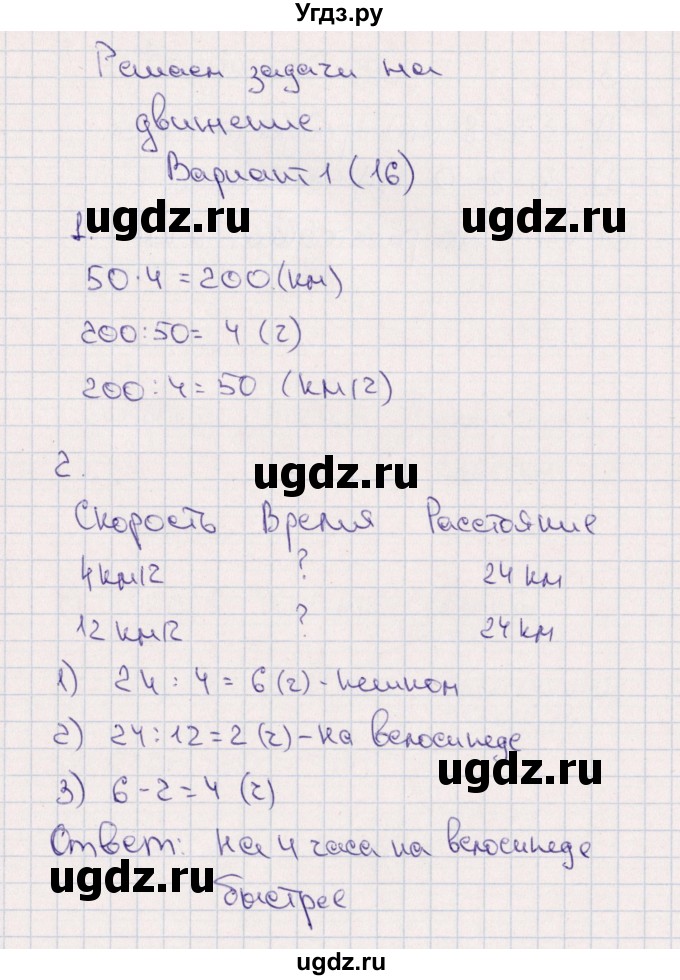 Угдз.ру
Решаем задачи на
движение.
Вариант 1 (16)
1.
ugdz.ru ugdz.ru
50·4=200(км)
200:50= 4 (г)
200:4=50 (км/г)
2.
ugdz.ru
Скорость Время Расстояние
4км/г ? 24 км
12 км/г ? 24 км
1) 24 : 4 = 6 (г) - пешком
2) 24:12=2 (г) - на велосипеде
ugdz.ru
3) 6-2=4 (г)
Ответ: на 4 часа на велосипеде
ugdz.ru
быстрее
ugdz.ru